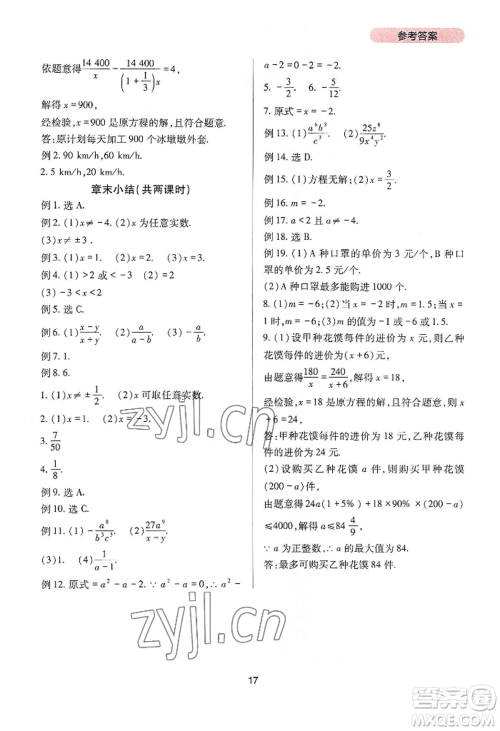 参考答案
依题意得 14 400/x - 14 400/((1+1/3)x) = 4,
解得 x=900,
经检验, x=900 是原方程的解,且符合题意.
答:原计划每天加工 900 个冰墩墩外套.
例 2. 90 km/h,60 km/h.
2. 5 km/h,20 km/h.
章末小结(共两课时)
例 1. 选 A.
例 2. (1)x≠-4. (2)x 取任意实数.
(3)x≠±3.
例 3. 选 B.
例 4. (1)>2 (2)<-2 或>2
(3)-3<x<2
例 5. 选 C.
例 6. (1)(x-y)/(x+y) (2)a/(a-b)
例 7. 1.
例 8. 6.
1. (1)x≠±1/2. (2)x 可取任意实数.
2. (1)x=0. (2)x=-3.
3. 7/50
4. 1/8.
例 9. 选 A
例 10. 选 C.
例 11. (1)-a^8/b^3 (2)27a^9/x^6
(3)1. (4)1/(a-1)
例 12. 原式=a²-a-2. ∵a²-a-2=0, ∴a²-
a-2=0-2=-2.
5. -3/2. 6. -5/12.
7. 原式=a=-2.
例 13. (1)a^6b^3 (2)25z^8/(9x^4y^2)
例 14. 选 D.
例 15. (1)方程无解. (2)x=2.
例 16. m=-2.
例 17. a<2
例 18. 选 D.
例 19. (1)A 种口罩的单价为 3 元/个,B
种口罩的单价为 2.5 元/个.
(2)A 种口罩最多能购进 1000 个.
8. (1)m=-6;(2)m 的值为-1 或-6.
9. (1)设甲种花馍每件的进价为 x 元,则乙种
花馍每件的进价为(x+6)元,
由题意得 180/x=240/(x+6),解得 x=18,
经检验,x=18 是原方程的解,且符合题意,
x+6=24,
答:甲种花馍每件的进价为 18 元,乙种花馍
每件的进价为 24 元.
(2)设购买乙种花馍 a 件,则购买甲种花馍
(200-a)件,
由题意得 24a(1+5%)+18×90%×(200-a)
≤4000,解得 a≤84 4/9,
∵a 为正整数,∴a 的最大值为 84.
答:最多可购买乙种花馍 84 件.
zyjl.cn
zyjl.cn
17
答案圈
MXQE.COM